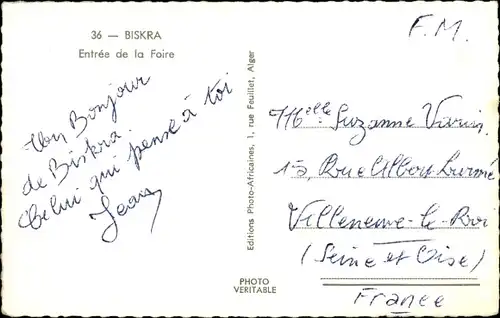 36 — BISKRA
Entrée de la Foire
Un Bonjour
de Biskra.
Celui qui pense à toi
Jean
Editions Photo-Africaines, 1, rue Feuillet, Alger
PHOTO
VERITABLE
F.M.
Melle Suzanne
15, Rue Albert
Villeneuve-le-Roi
(Seine et Oise)
France